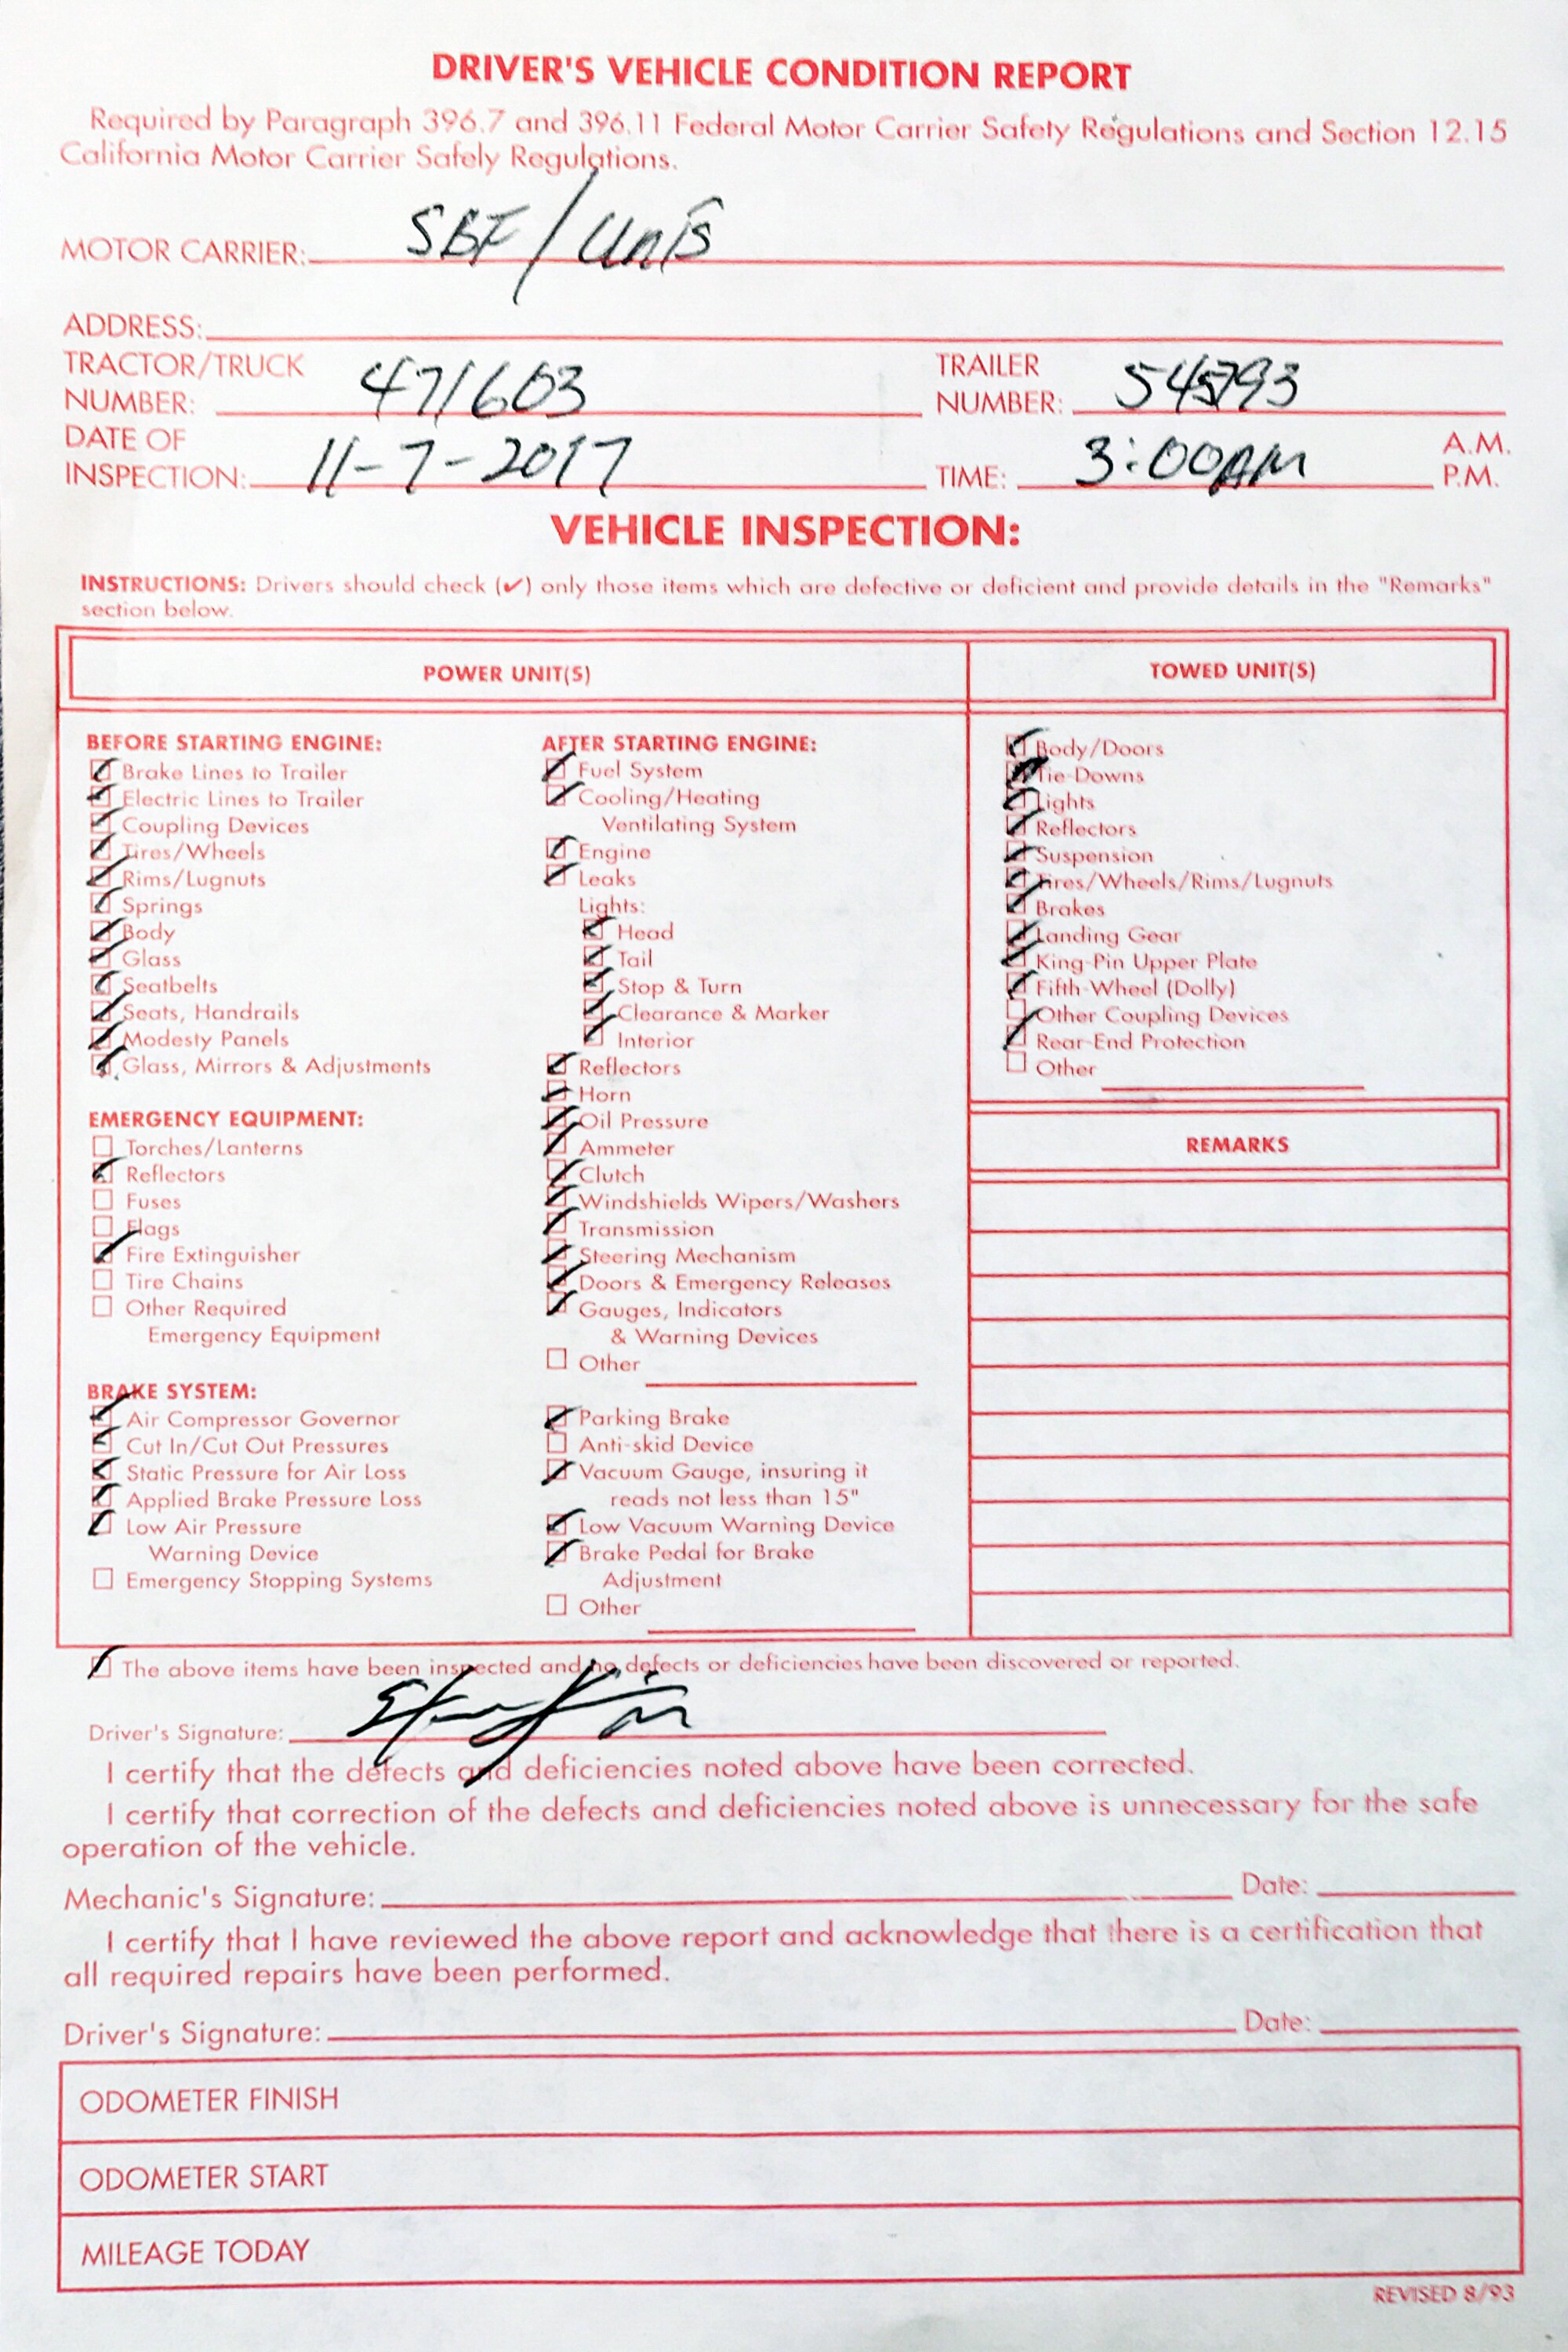 DRIVER'S VEHICLE CONDITION REPORT
Required by Paragraph 396.7 and 396.11 Federal Motor Carrier Safety Regulations and Section 12.15
California Motor Carrier Safely Regulations.
MOTOR CARRIER: SBF/Unis
ADDRESS:
TRACTOR/TRUCK NUMBER: 471603
TRAILER NUMBER: 545793
DATE OF INSPECTION: 11-7-2017
TIME: 3:00AM A.M. P.M.
VEHICLE INSPECTION:
INSTRUCTIONS: Drivers should check (✓) only those items which are defective or deficient and provide details in the "Remarks"
section below.
POWER UNIT(S)
BEFORE STARTING ENGINE:
Brake Lines to Trailer
Electric Lines to Trailer
Coupling Devices
Tires/Wheels
Rims/Lugnuts
Springs
Body
Glass
Seatbelts
Seats, Handrails
Modesty Panels
Glass, Mirrors & Adjustments
EMERGENCY EQUIPMENT:
Torches/Lanterns
Reflectors
Fuses
Flags
Fire Extinguisher
Tire Chains
Other Required
Emergency Equipment
BRAKE SYSTEM:
Air Compressor Governor
Cut In/Cut Out Pressures
Static Pressure for Air Loss
Applied Brake Pressure Loss
Low Air Pressure
Warning Device
Emergency Stopping Systems
AFTER STARTING ENGINE:
Fuel System
Cooling/Heating
Ventilating System
Engine
Leaks
Lights:
Head
Tail
Stop & Turn
Clearance & Marker
Interior
Reflectors
Horn
Oil Pressure
Ammeter
Clutch
Windshields Wipers/Washers
Transmission
Steering Mechanism
Doors & Emergency Releases
Gauges, Indicators
& Warning Devices
Other
Parking Brake
Anti-skid Device
Vacuum Gauge, insuring it
reads not less than 15"
Low Vacuum Warning Device
Brake Pedal for Brake
Adjustment
Other
TOWED UNIT(S)
Body/Doors
Tie-Downs
Lights
Reflectors
Suspension
Tires/Wheels/Rims/Lugnuts
Brakes
Landing Gear
King-Pin Upper Plate
Fifth-Wheel (Dolly)
Other Coupling Devices
Rear-End Protection
Other
REMARKS
The above items have been inspected and no defects or deficiencies have been discovered or reported.
Driver's Signature:
I certify that the defects and deficiencies noted above have been corrected.
I certify that correction of the defects and deficiencies noted above is unnecessary for the safe
operation of the vehicle.
Mechanic's Signature: Date:
I certify that I have reviewed the above report and acknowledge that there is a certification that
all required repairs have been performed.
Driver's Signature: Date:
ODOMETER FINISH
ODOMETER START
MILEAGE TODAY
REVISED 8/93